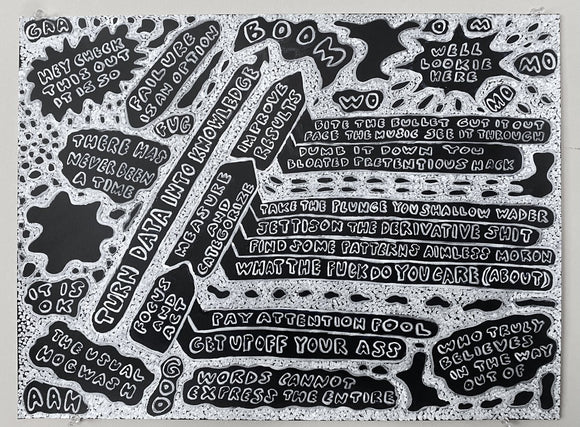 GAA
HEY CHECK
THIS OUT
IT IS SO
FAILURE
IS AN OPTION
FUG
BOOM
OM
MO
WELL
LOOKIE
HERE
MO
MO
WO
THERE HAS
NEVER BEEN
A TIME
TURN DATA INTO KNOWLEDGE
IMPROVE
RESULTS
BITE THE BULLET GUT IT OUT
FACE THE MUSIC SEE IT THROUGH
DUMB IT DOWN YOU
BLOATED PRETENTIOUS HACK
MEASURE
AND
CATEGORIZE
TAKE THE PLUNGE YOU SHALLOW WADER
JETTISON THE DERIVATIVE SHIT
FIND SOME PATTERNS AIMLESS MORON
WHAT THE FUCK DO YOU CARE (ABOUT)
FOCUS
AND
ACT
PAY ATTENTION FOOL
GET UP OFF YOUR ASS
IT IS
OK
THE USUAL
HOGWASH
AAH
GOO
WORDS CANNOT
EXPRESS THE ENTIRE
WHO TRULY
BELIEVES
IN THE WAY
OUT OF